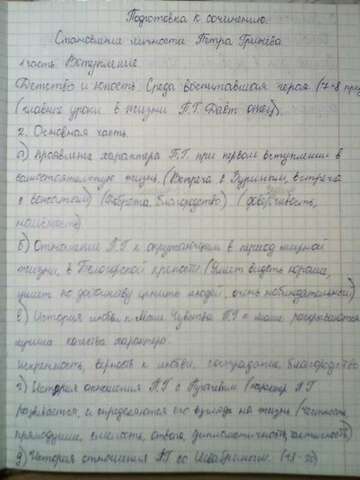 Подготовка к сочинению.
Становление личности Петра Гринёва
1 часть. Вступление.
Детство и юность. Среда воспитавшая героя. (7-8 пред
(главные уроки в жизни П.Г. даёт отец).
2. Основная часть.
а) проявление характера П.Г. при первом вступлении в
самостоятельную жизнь. (Встреча с Зуриным, встреча
с вожатым) (Доброта, благородство) (доверчивость,
наивность)
б) Отношение П.Г к окружающим в период мирной
жизни, в Белогорской крепости (Умеет видеть хорошее,
умеет по достоинству ценить людей, очень наблюдательный)
в) История любви к Маше. Чувства П.Г к маше раскрываются
лучшие качества характера.
искренность, верность к любви, сострадание, благородство
г) История отношения П.Г с Пугачевым (характер П.Г
развивается, и определяются его взгляды на жизнь (честность
прямодушие, смелость, отвага, дипломатичность,
д) История отношений П.Г со Швабриным.